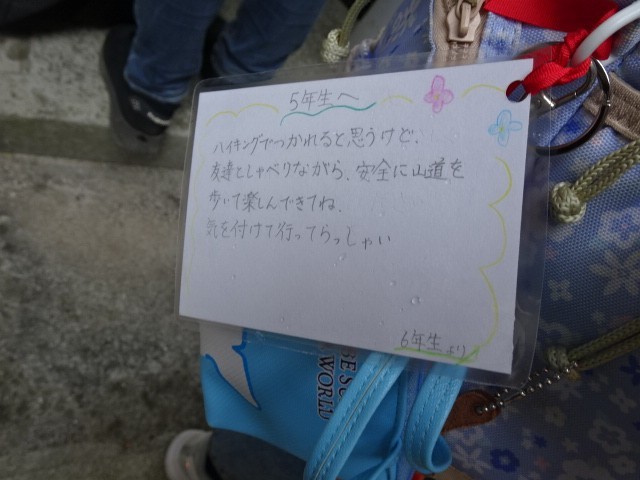 5年生へ
ハイキングでつかれると思うけど、
友達としゃべりながら、安全に山道を
歩いて楽しんできてね。
気を付けて行ってらっしゃい
6年生より
WORLD